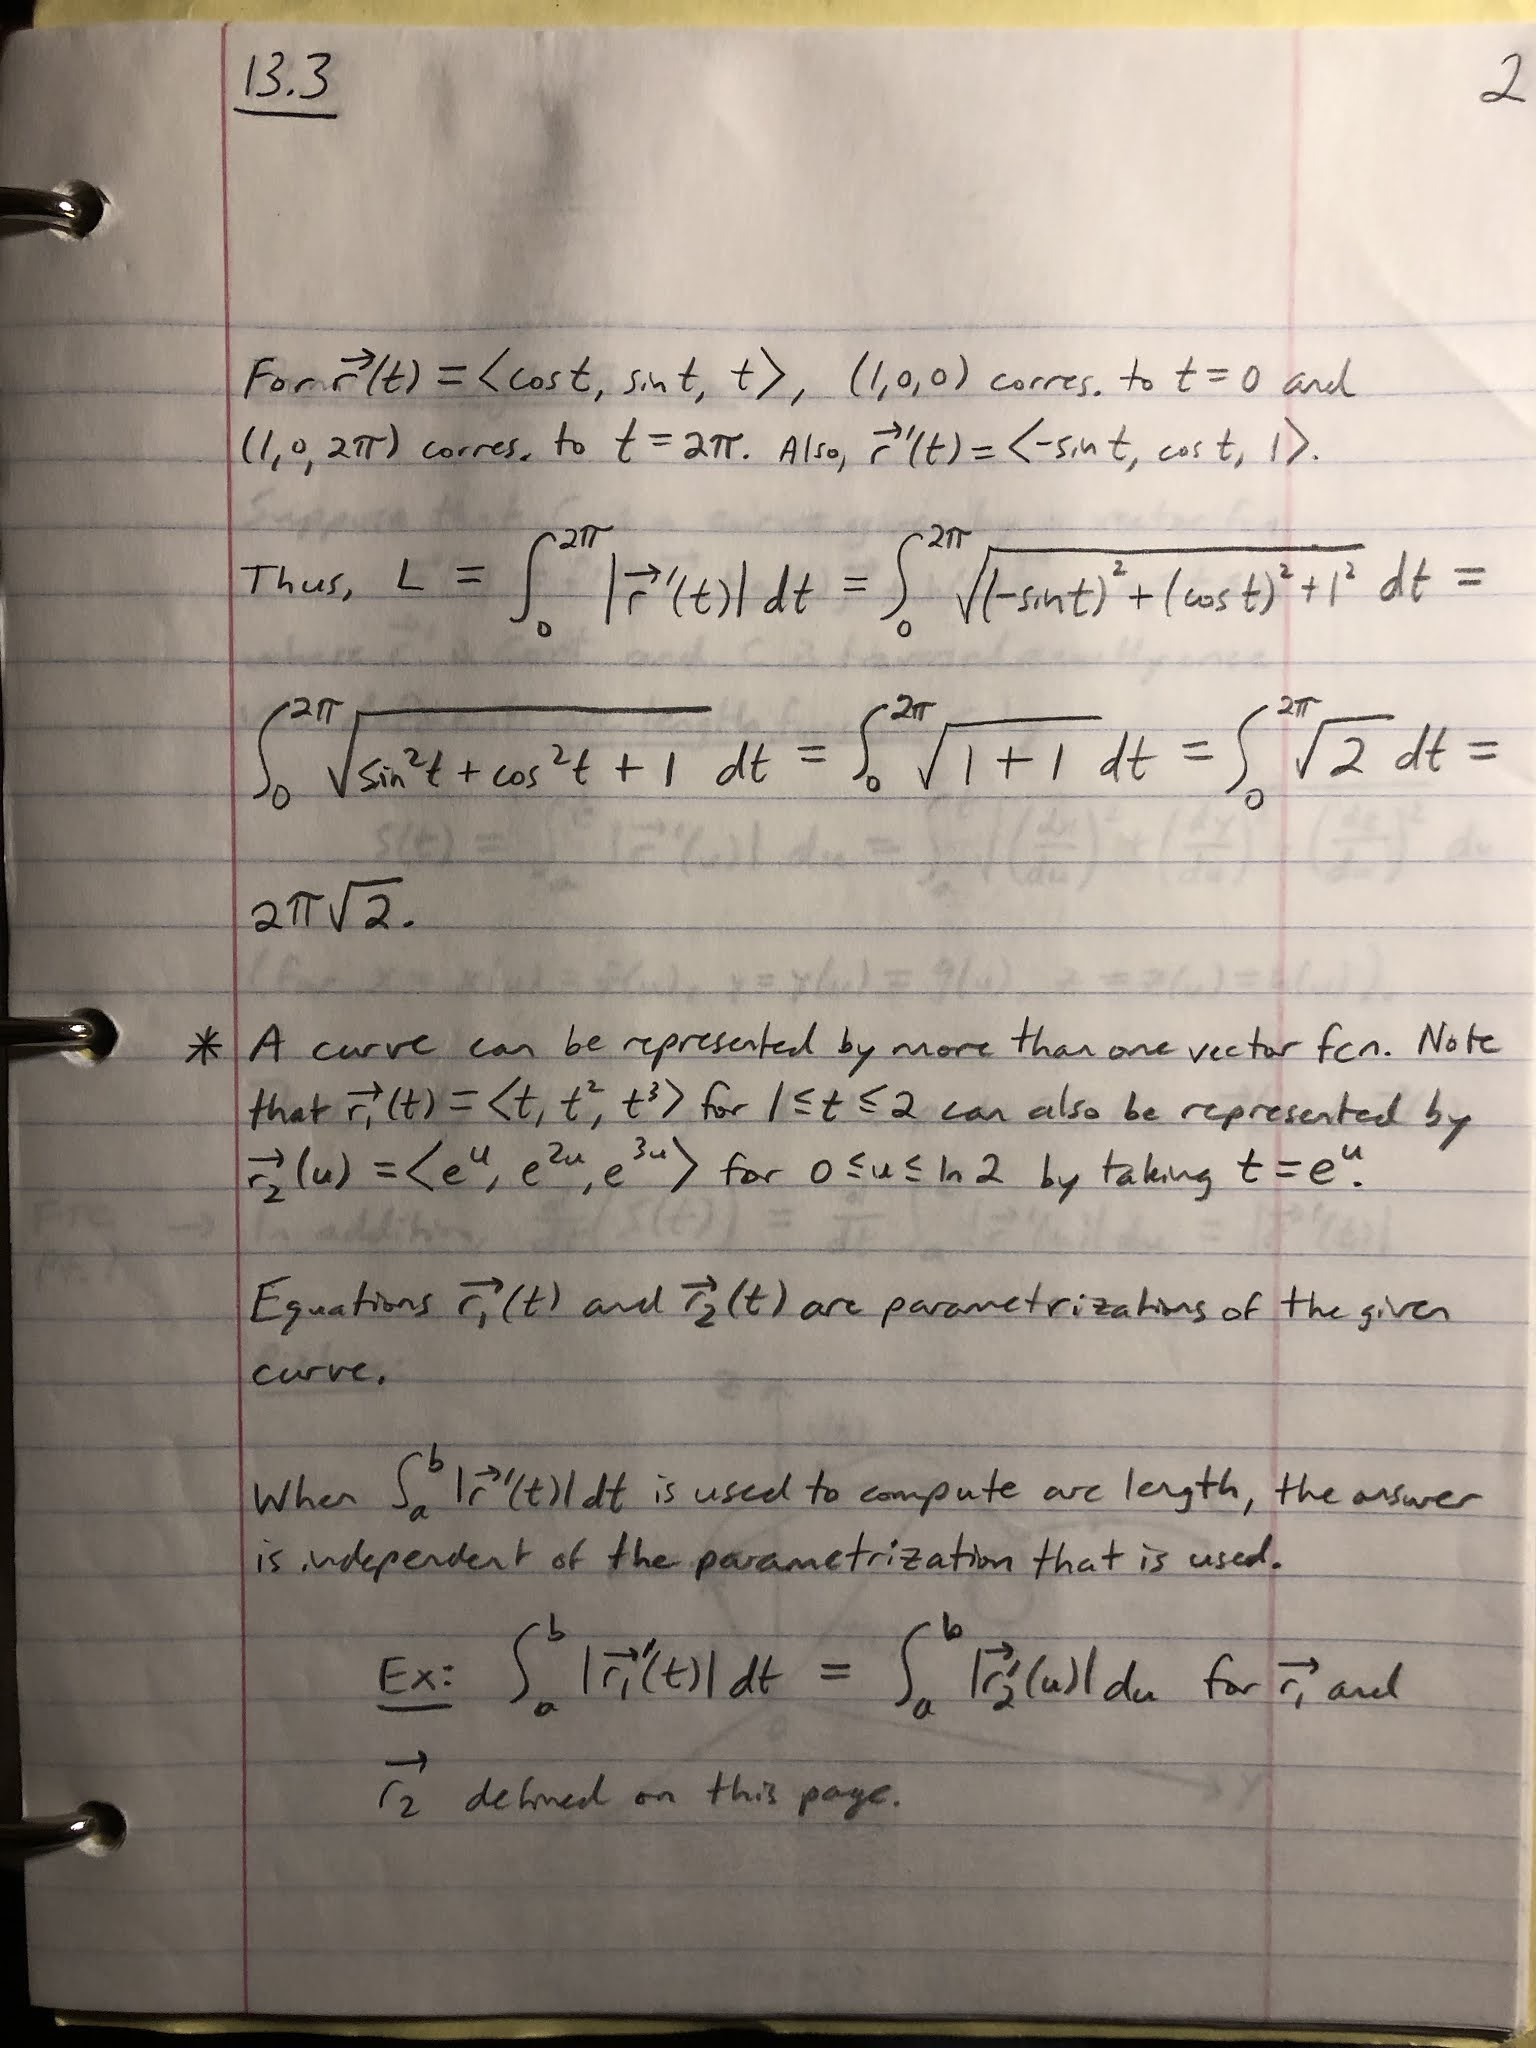 13.3
2
For r⃗(t) = <cos t, sin t, t>, (1,0,0) corres. to t = 0 and
(1,0,2π) corres. to t = 2π. Also, r⃗'(t) = <-sin t, cos t, 1>.
Thus, L = ∫₀^2π |r⃗'(t)| dt = ∫₀^2π √((-sin t)² + (cos t)² + 1²) dt =
∫₀^2π √(sin²t + cos²t + 1) dt = ∫₀^2π √(1 + 1) dt = ∫₀^2π √2 dt =
2π√2.
* A curve can be represented by more than one vector fcn. Note
that r⃗₁(t) = <t, t², t³> for 1 ≤ t ≤ 2 can also be represented by
r⃗₂(u) = <e^u, e^2u, e^3u> for 0 ≤ u ≤ ln 2 by taking t = e^u.
Equations r⃗₁(t) and r⃗₂(t) are parametrizations of the given
curve.
When ∫ₐ^b |r⃗'(t)| dt is used to compute arc length, the answer
is independent of the parametrization that is used.
Ex: ∫ₐ^b |r⃗₁'(t)| dt = ∫ₐ^b |r⃗₂'(u)| du for r⃗₁ and
r⃗₂ defined on this page.